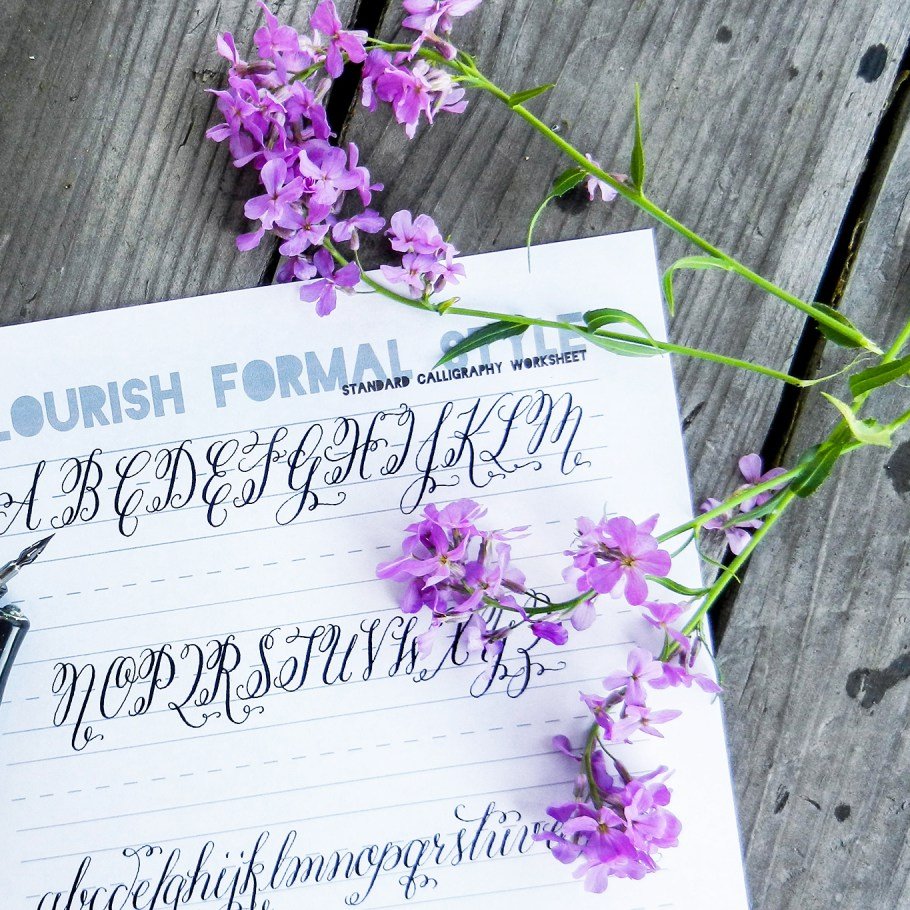 LOURISH FORMAL STYLE
STANDARD CALLIGRAPHY WORKSHEET
A B C D E F G H I J K L M
N O P Q R S T U V W X Y Z
abcdefghijklmnopqrstuv